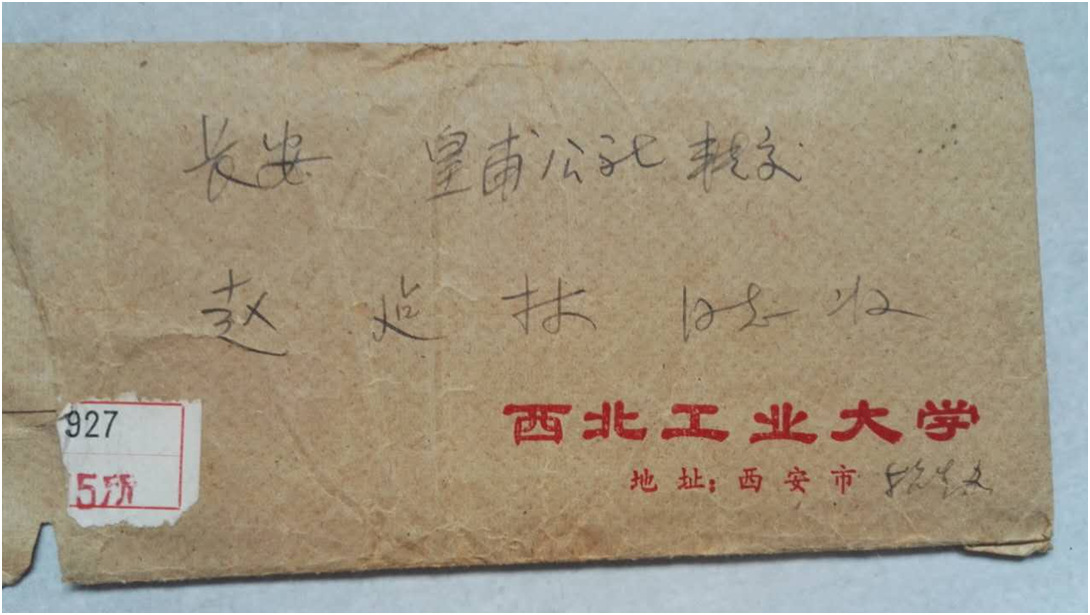 长安 皇甫公社 转交
赵 同志收
927
5所
西北工业大学
地址：西安市